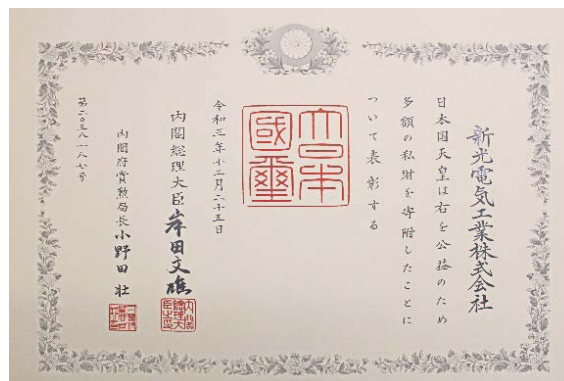 新光電気工業株式会社
日本国天皇は右を公益のため
多額の私財を寄附したことに
ついて表彰する
大日本
國璽
令和三年十二月二十五日
内閣総理大臣 岸田文雄
内閣総理大臣之印
内閣府賞勲局長 小野田 壮